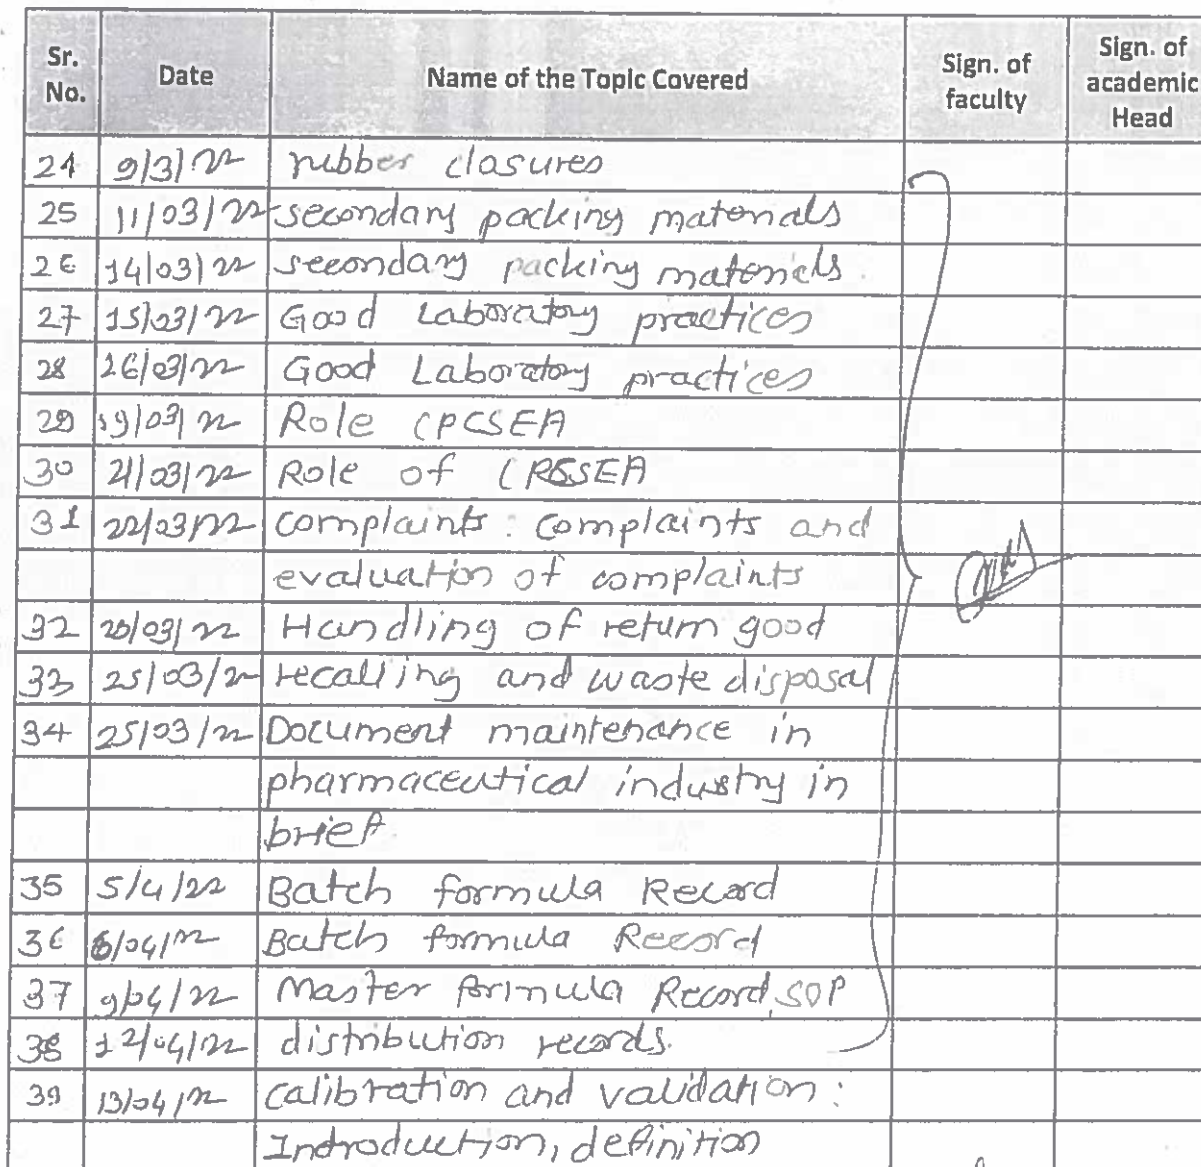 Sr. No. Date Name of the Topic Covered Sign. of faculty Sign. of academic Head
24 9/3/22 rubber closures
25 11/03/22 secondary packing materials
26 14/03/22 secondary packing materials.
27 15/03/22 Good Laboratory practices
28 26/03/22 Good Laboratory practices
29 19/03/22 Role CPCSEA
30 21/03/22 Role of
31 22/03/22 complaints: complaints and
evaluation of complaints
32 Handling of return good
33 25/03/22 recalling and waste disposal
34 25/03/22 Document maintenance in
pharmaceutical industry in
brief
35 5/4/22 Batch formula Record
36 6/04/22 Batch formula Record
37 9/04/22 Master formula Record, SOP
38 12/04/22 distribution records.
39 13/04/22 calibration and validation:
Introduction, definition